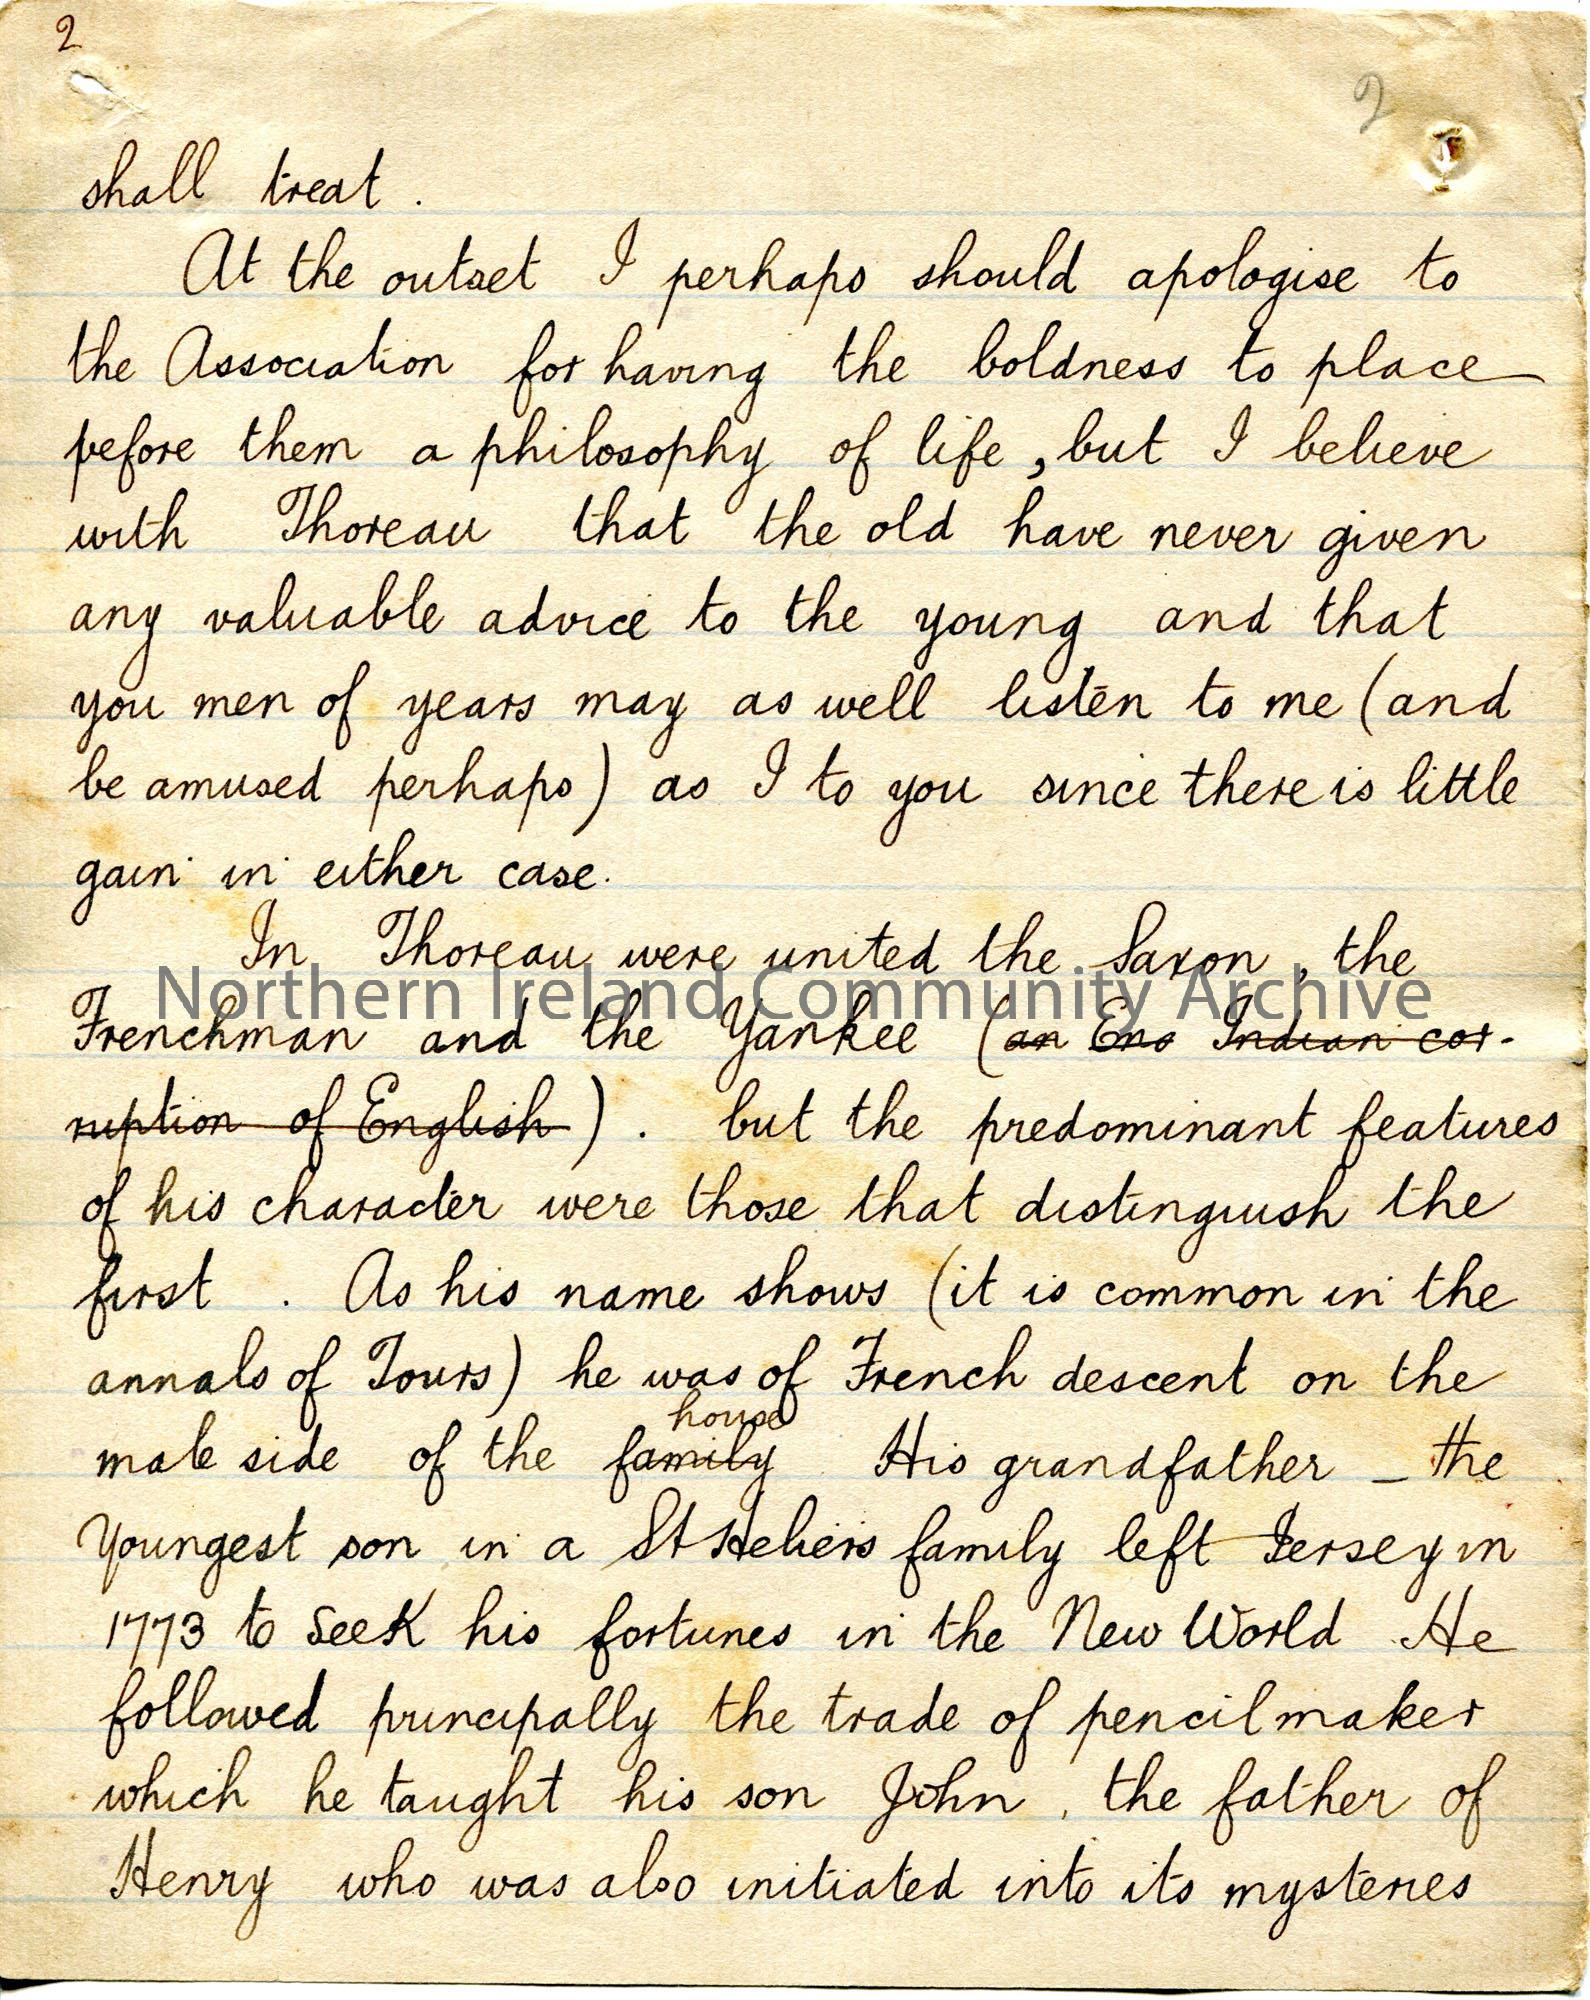 2
2
shall treat .
At the outset I perhaps should apologise to
the Association for having the boldness to place
before them a philosophy of life , but I believe
with Thoreau that the old have never given
any valuable advice to the young and that
you men of years may as well listen to me (and
be amused perhaps) as I to you since there is little
gain in either case.
In Thoreau were united the Saxon , the
Northern Ireland Community Archive
Frenchman and the Yankee (an Eng Indian cor-
ruption of English ) . but the predominant features
of his character were those that distinguish the
first . As his name shows (it is common in the
annals of Tours) he was of French descent on the
house
male side of the family His grandfather – the
youngest son in a St Heliers family left Jersey in
1773 to seek his fortunes in the New World He
followed principally the trade of pencil maker
which he taught his son John , the father of
Henry who was also initiated into its mysteries